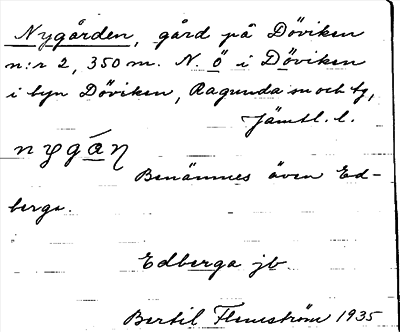 Nygården, gård på Döviken
n:r 2, 350 m. N. Ö i Döviken
i byn Döviken, Ragunda sn och tg,
Jämtl. l.
nygáŋ
Benämnes även Ed-
berga.
Edberga jb.
Bertil Flemström 1935